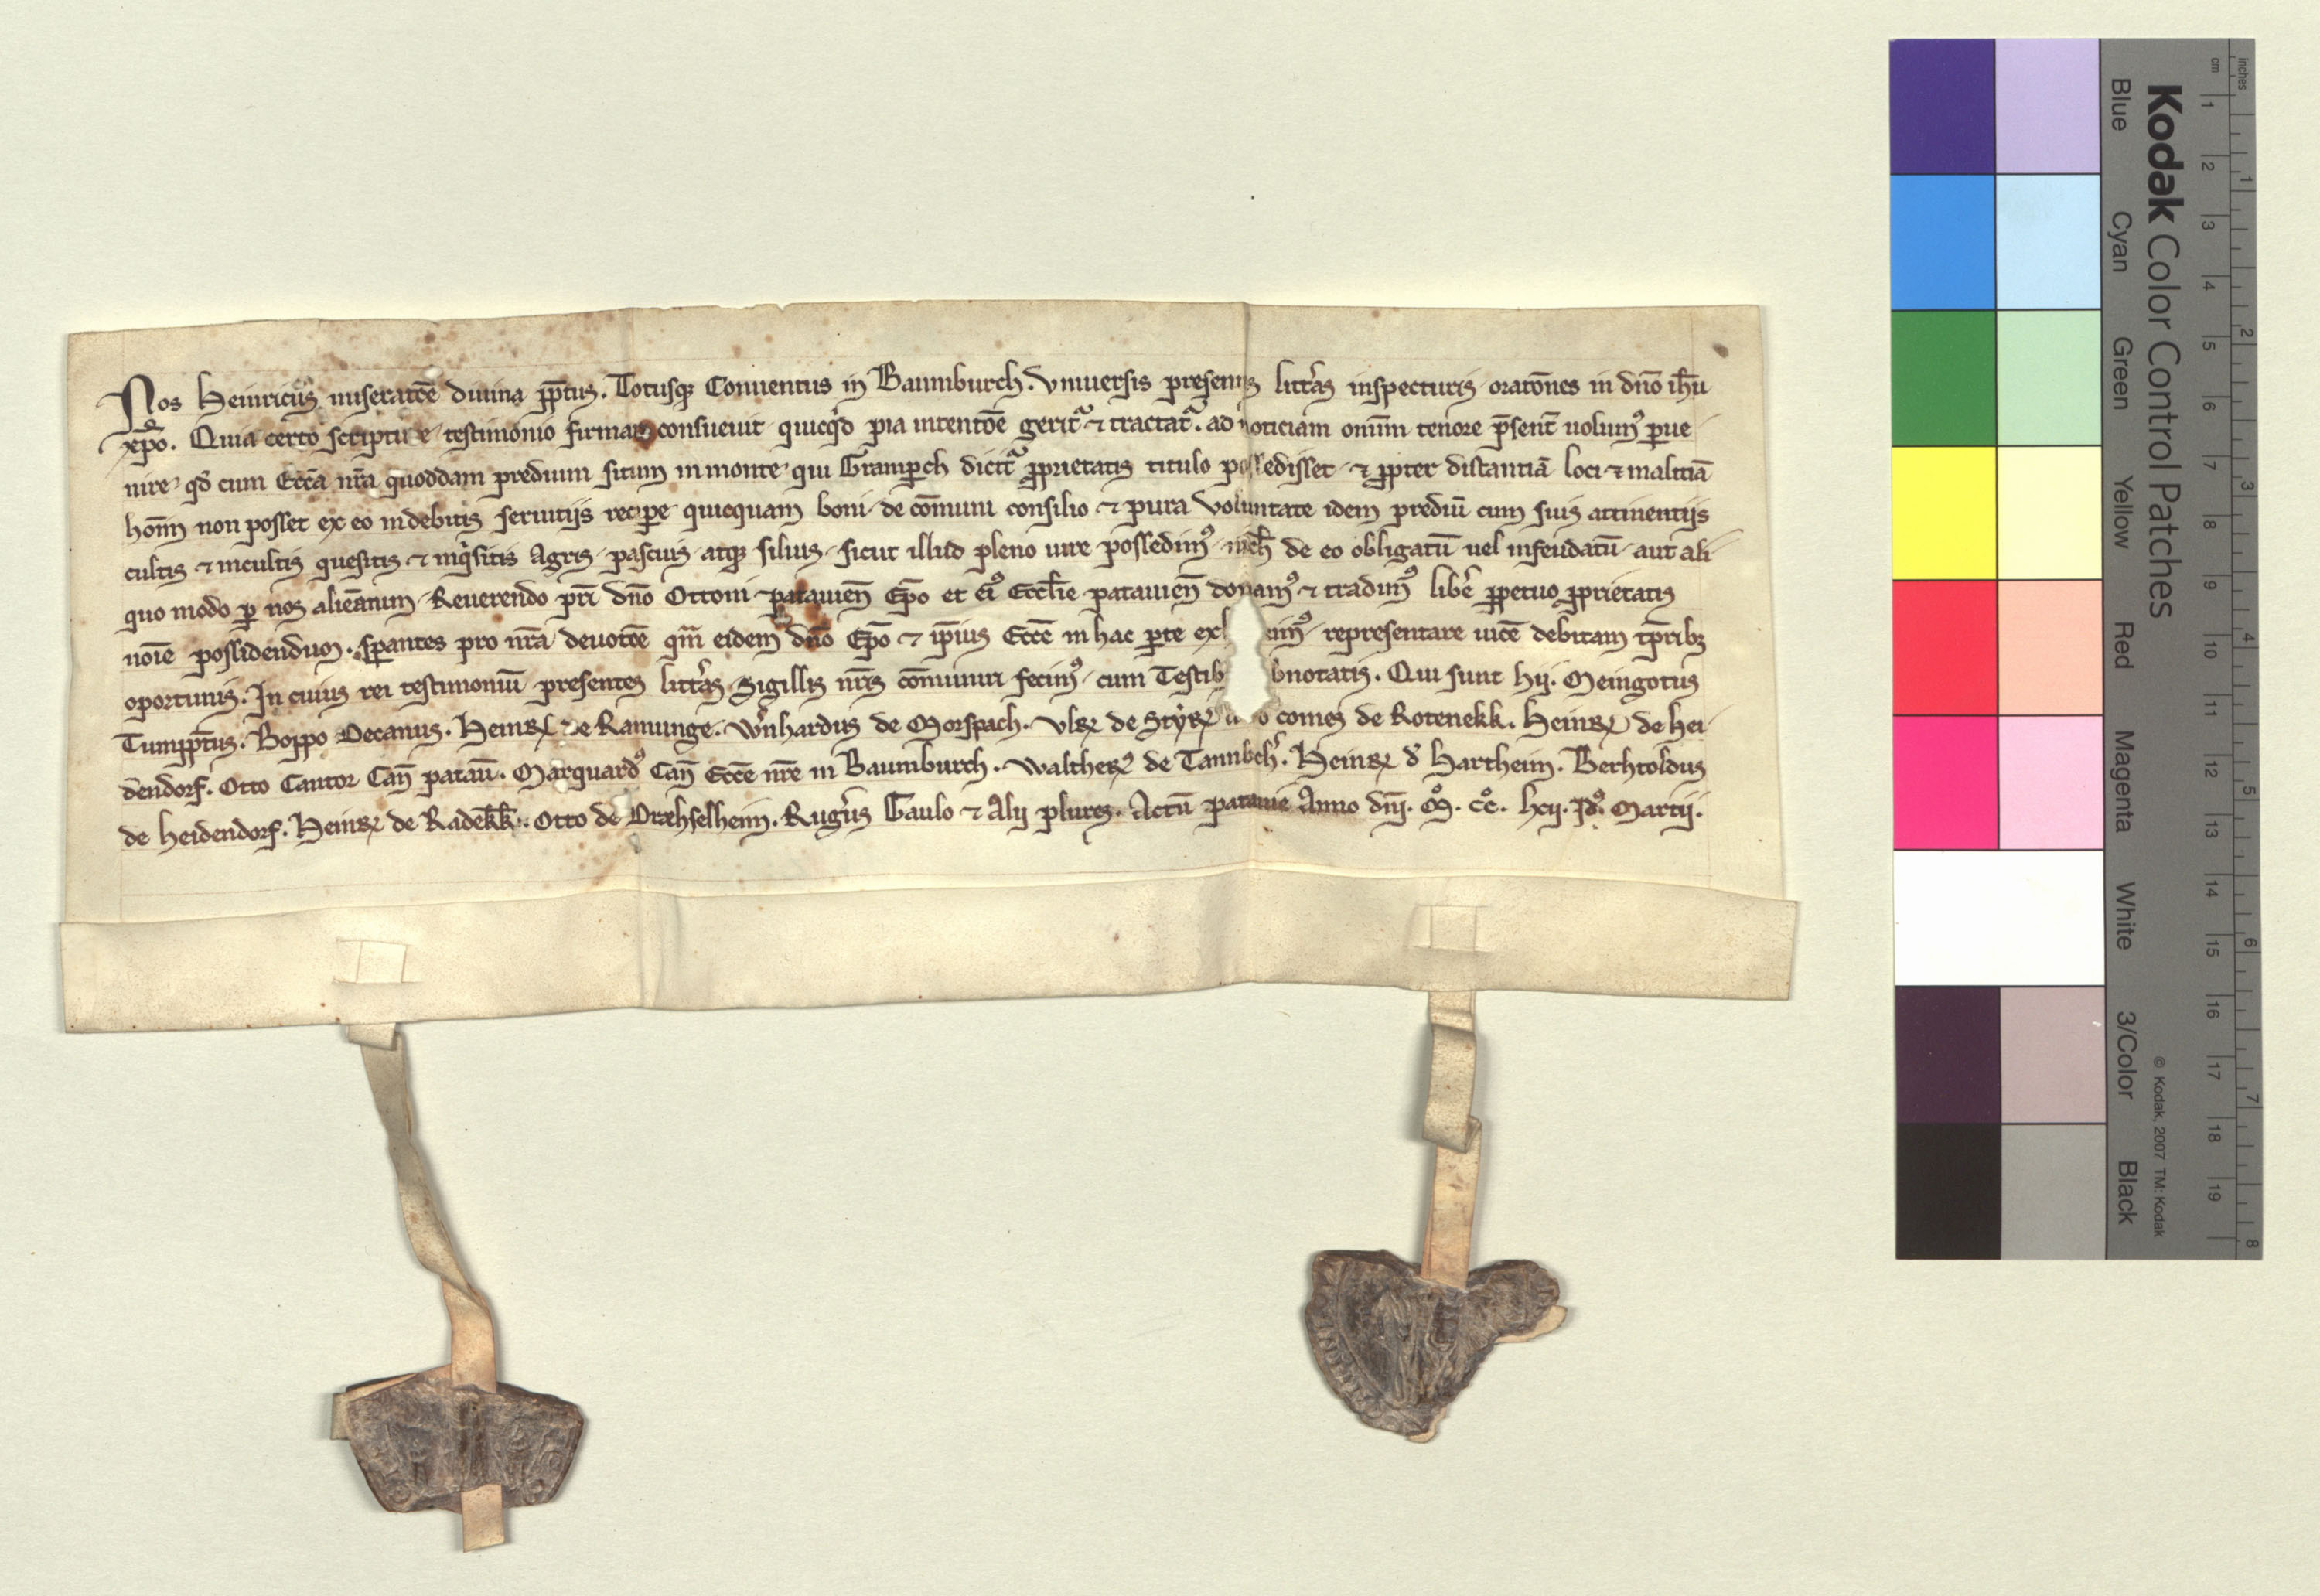 Nos Heinricus miseratōe diuina pp̄tus. Totusqꝫ Conuentus in Baumburch. Vniuersis presentes litt̄as inspecturis oratōnes in dn̄o ih̄u
xp̄o. Quia certo scripture testimonio firmari consueuit quicq͛d pia intentōe gerit᷑ ⁊ tractat᷑. ad noticiam omīum tenore p̄sent̄ uolumꝰ ꝑue
nire qd̓ cum Ecc̄a nr̄a quoddam predium situm in monte qui Gramꝑch dicit᷑ ꝓprietatis titulo possedisset ⁊ ꝓpter distantiā loci ⁊ malitiā
hoīm non posset ex eo indebitis seruitijs reciꝑe quicquam boni de cōmuni consilio ⁊ pura voluntate idem prediū cum suis attinentijs
cultis ⁊ incultis quesitis ⁊ inq͛sitis Agris pascuis atqꝫ siluis sicut illud pleno iure possedimꝰ nich̄ de eo obligatū uel infeudatū aut ali
quo modo ꝑ nos alieātum Reuerendo pr̄i dn̄o Ottoni patauien̄ Ep̄o et eiꝰ Eccl̄ie patauien̄ donamꝰ ⁊ tradimꝰ lib̓e ꝑpetuo ꝓprietatis
noīe possidendum. sꝑantes pro nr̄a deuotōe qm̄ eidem dn̄o Ep̄o ⁊ ip̄ius Ecc̄e in hac ꝑte imꝰ representare uicē debitam tp̄ribꝫ
oportunis. In cuius rei testimoniū presentes litt̄as Sigillis nr̄is cōmuniri fecimꝰ cum Testib bnotatis. Qui sunt hij. Meingotus
Tump̄p̄tus. Boppo Decanus. Heinr̄ de Ramunge. Wn̓hardus de Morspach. Vlr̄ de Styr̄ comes de Rotenekk. Heinr̄ de Hei
dendorf. Otto Cantor Can̄ patau̅. Marquardꝰ Can̄ Ecc̄e nr̄e in Baumburch. Waltherꝰ de Tannbch̓. Heinr̄ d̓ Hartheim. Berhtoldus
de Heidendorf. Heinr̄ de Radēkk. Otto de Dræhselheim. Rug̓us Gaulo ⁊ Alij plures. Actū patauie Anno dn̄j. Mͦ. ccͦ. lxij. Jdꝰ. Martij.
Kodak Color Control Patches
Blue Cyan Green Yellow Red Magenta White 3/Color Black
© Kodak, 2007 TM: Kodak
cm 1 2 3 4 5 6 7 8 9 10 11 12 13 14 15 16 17 18 19
inches 1 2 3 4 5 6 7 8